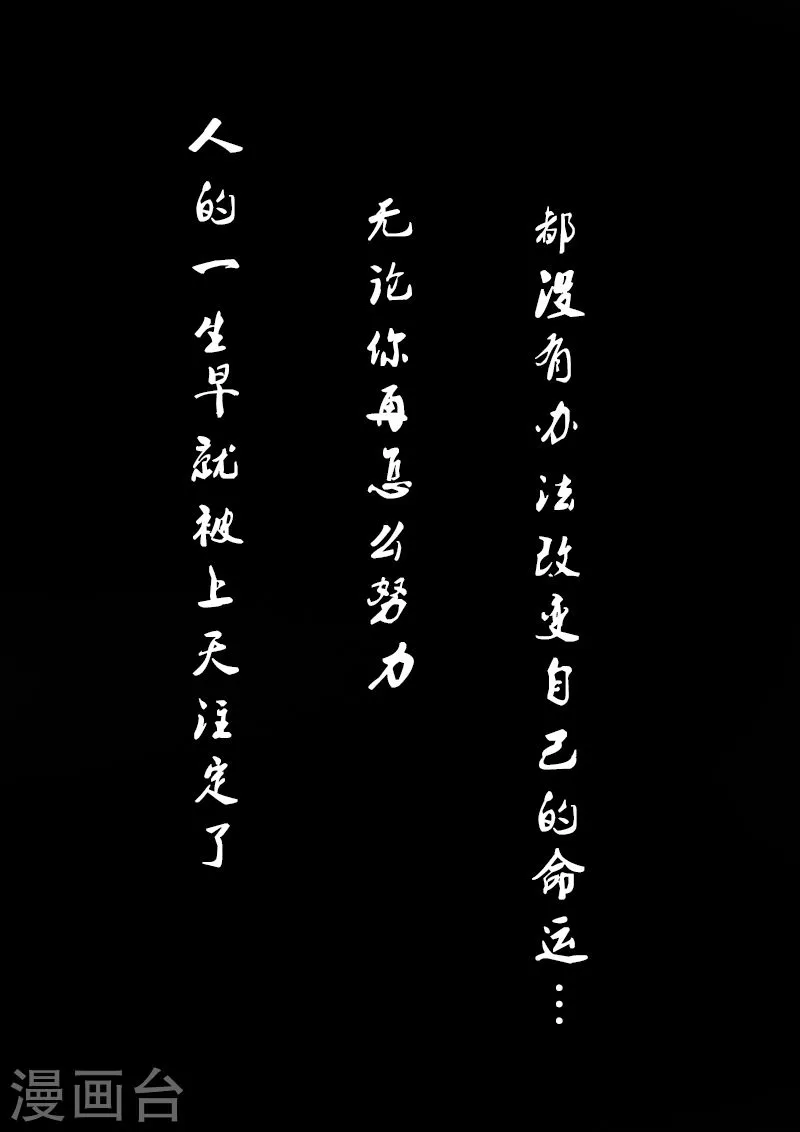 人的一生早就被上天注定了
无论你再怎么努力
都没有办法改变自己的命运…
漫画台